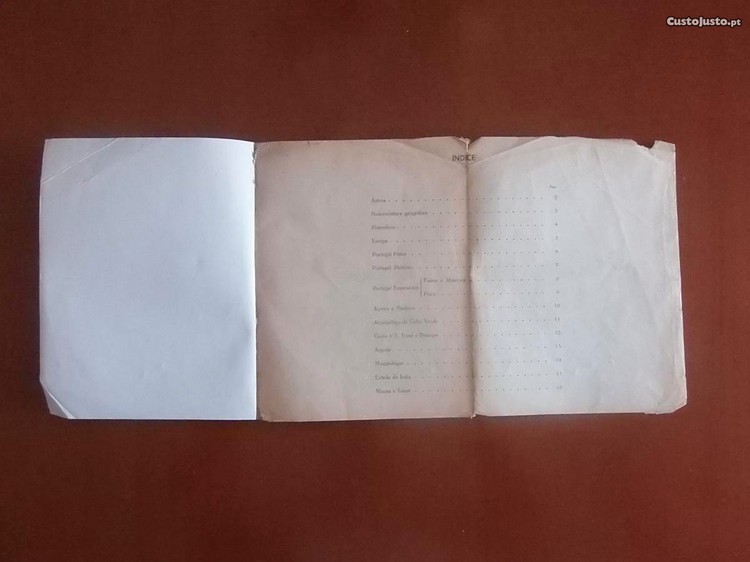 CustoJusto.pt
INDICE
Pág.
Astros 2
Nomenclatura geográfica 3
Planisfério 4
Europa 5
Portugal Físico 6
Portugal Político
Portugal Económico
Açores e Madeira 10
Arquipélago de Cabo Verde 11
Guiné e S. Tomé e Príncipe 12
Angola 13
Moçambique 14
Estado da Índia 15
Macau e Timor 16